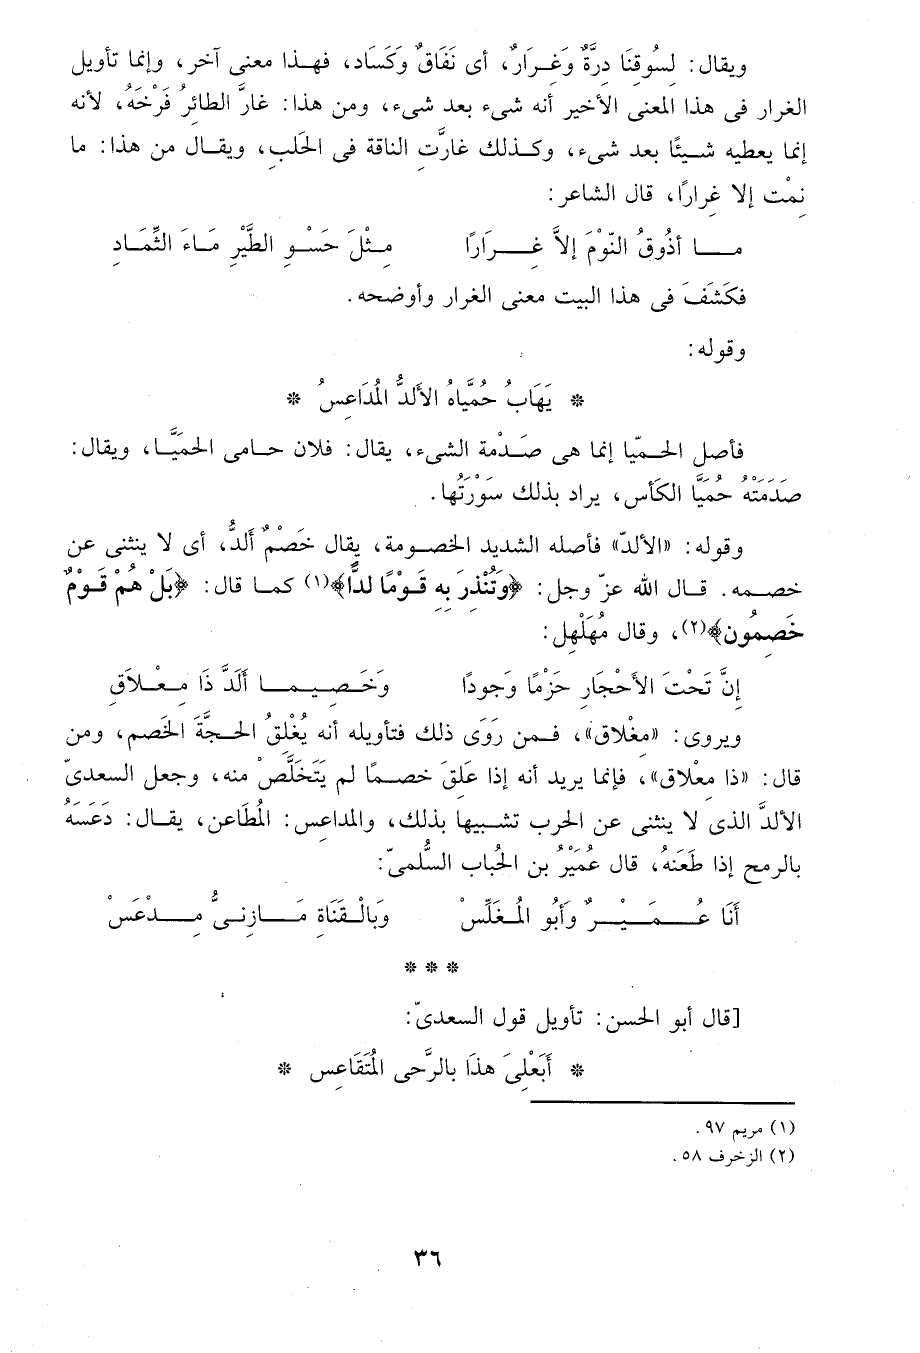 ويقال: لسُوقنَا درَّةٌ وَغـرَارٌ، أى نَفَاقٌ وَكَسَاد، فهـذا معنى آخر، وإنما تأويل
الغرار فى هذا المعنى الأخير أنه شىء بعد شىء، ومن هذا: غارَّ الطائرُ فَرْخَهُ، لأنه
إنما يعطيه شـيئًا بعد شىء، وكـذلك غارَّت الناقة فى الحَلب، ويقـال من هذا: ما
نمْت إلا غرارًا، قال الشاعر:
مـــا أذُوقُ النّوْمَ إلاَّ غـــرَارًا مـثْلَ حَسْـو الطَّيْر مَـاءَ الثِّمَـاد
فكَشَفَ فى هذا البيت معنى الغرار وأوضحه.
وقوله:
* يَهَابُ حُمَيَّاهُ الألَدُّ المُدَاعسُ *
فأصل الحـميّا إنما هى صَـدْمة الشىء، يقال: فلان حـامى الحمَيَّـا، ويقال:
صَدَمَتْهُ حُمَيَّا الكَأس، يراد بذلك سَوْرَتُها.
وقوله: «الألدّ» فأصله الشديد الخصـومة، يقال خَصْمٌ ألَدُّ، أى لا ينثنى عن
خصـمه. قـال الله عزّ وجل: ﴿وَتُنْذرَ به قَـوْمًا لدًّا﴾(١) كمـا قال: ﴿بَلْ هُمْ قَـوْمٌ
خَصمُون﴾(٢)، وقال مُهَلْهل:
إنَّ تَحْتَ الأحْجَار حَزْمًا وَجودًا وَخَـصـيـمـا ألَدَّ ذَا مـعْـلاَق
ويروى: «مغْلاق»، فـمن رَوَى ذلك فتأويله أنه يُغْلقُ الحـجَّةَ الخَصم، ومن
قال: «ذا معْلاق»، فإنما يريد أنه إذا عَلقَ خصـمًا لم يَتَخَلَّصْ منه، وجعل السعدىّ
الألدَّ الذى لا ينثنى عن الحرب تشـبيها بذلك، والمداعس: المُطَاعن، يقـال: دَعَسَهُ
بالرمح إذا طَعَنَهُ، قال عُمَيْرُ بن الحُباب السُّلمىّ:
أنَا عُـــمَـــيْـــرٌ وَأبُو المُـغَلِّسْ وَبَالْـقَنَاة مَـــازنىٌّ مـــدْعَسْ
* * *
[قال أبو الحسن: تأويل قول السعدىّ:
* أبَعْلىَ هذَا بالرَّحى المُتَقَاعس *
(١) مريم ٩٧.
(٢) الزخرف ٥٨.
٣٦